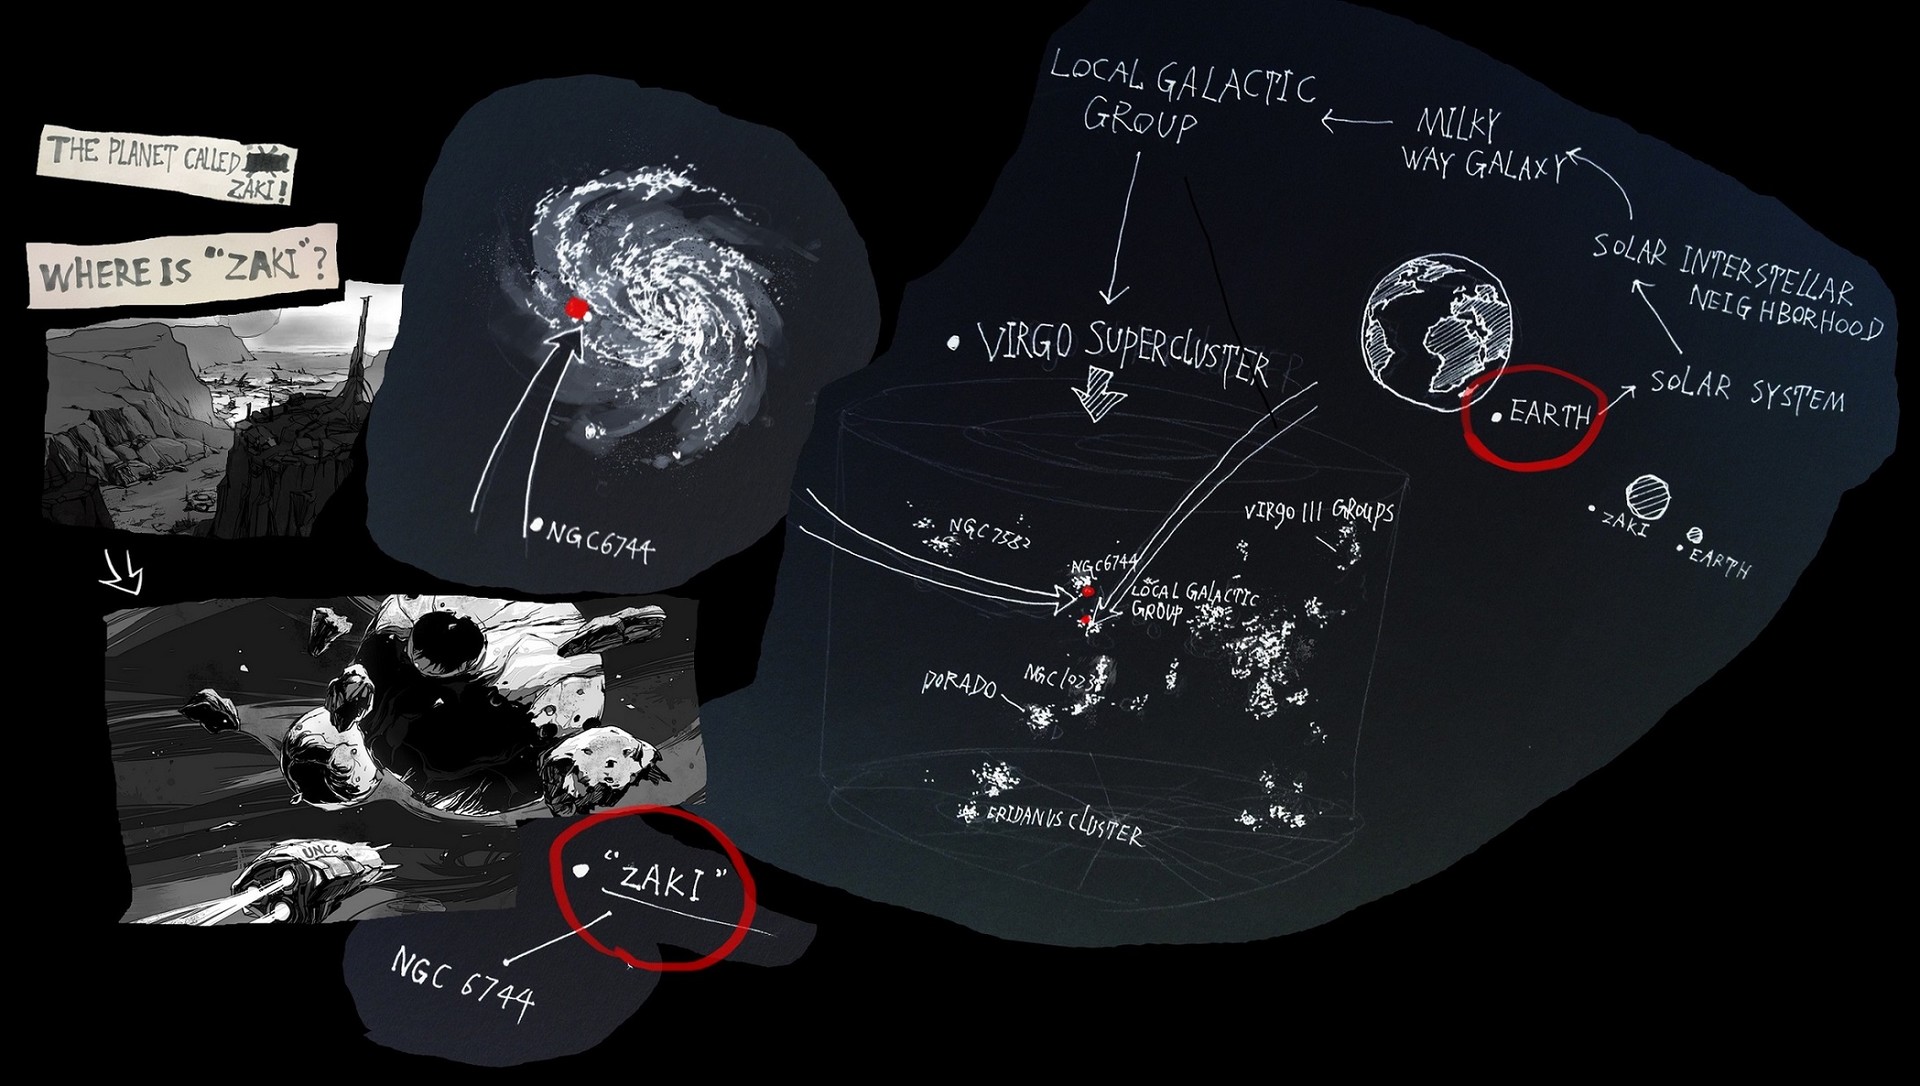 THE PLANET CALLED
ZAKI!
WHERE IS "ZAKI"?
NGC6744
UNCC
"ZAKI"
NGC 6744
LOCAL GALACTIC
GROUP
MILKY
WAY GALAXY
SOLAR INTERSTELLAR
NEIGHBORHOOD
SOLAR SYSTEM
EARTH
ZAKI
EARTH
VIRGO SUPERCLUSTER
NGC7582
VIRGO III GROUPS
NGC6744
LOCAL GALACTIC
GROUP
NGC1023
DORADO
ERIDANUS CLUSTER